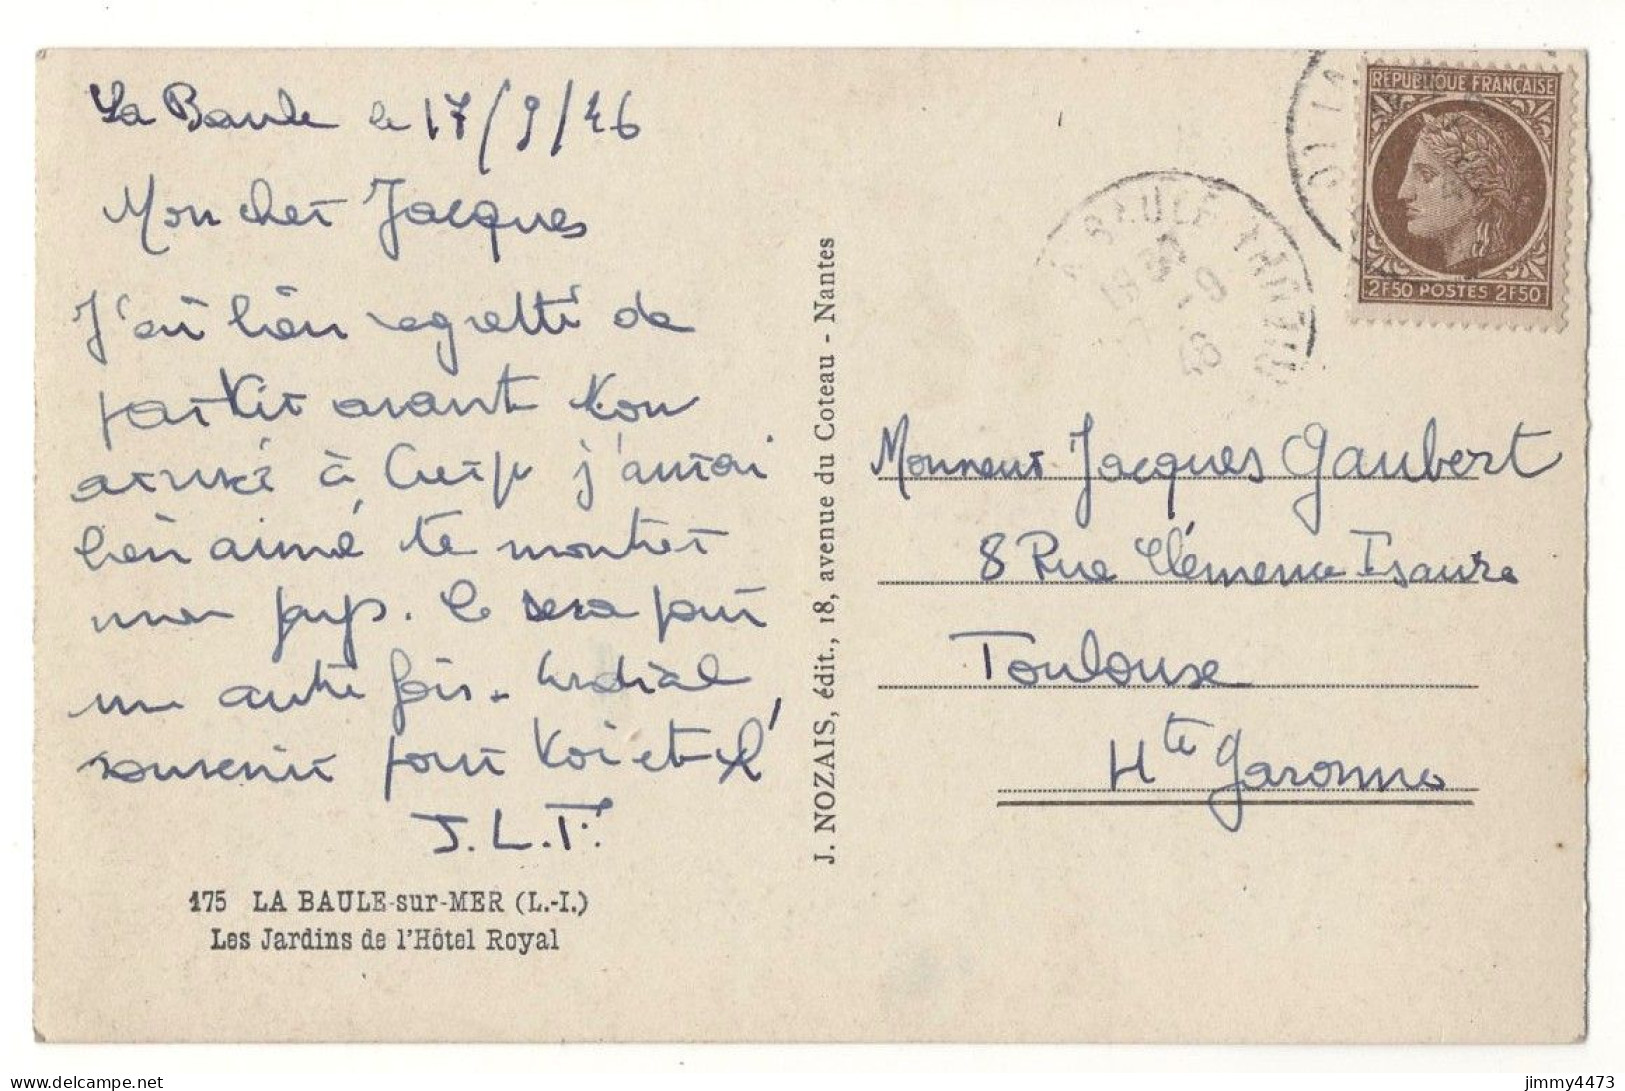 La Baule le 17/9/46
Mon cher Jacques
J'ai bien regretté de
partir avant ton
arrivée à j'aurai
bien aimé te montrer
mon pays. Ce sera pour
une autre fois. Cordial
souvenir pour toi et
J.L.T.
175 LA BAULE-sur-MER (L.-I.)
Les Jardins de l'Hôtel Royal
J. NOZAIS, édit., 18, avenue du Coteau - Nantes
RÉPUBLIQUE FRANÇAISE
2F50 POSTES 2F50
LA BAULE
-9
46
Monsieur Jacques Gaubert
8 Rue Clémence Isaure
Toulouse
Hte Garonne
delcampe.net
jimmy4473